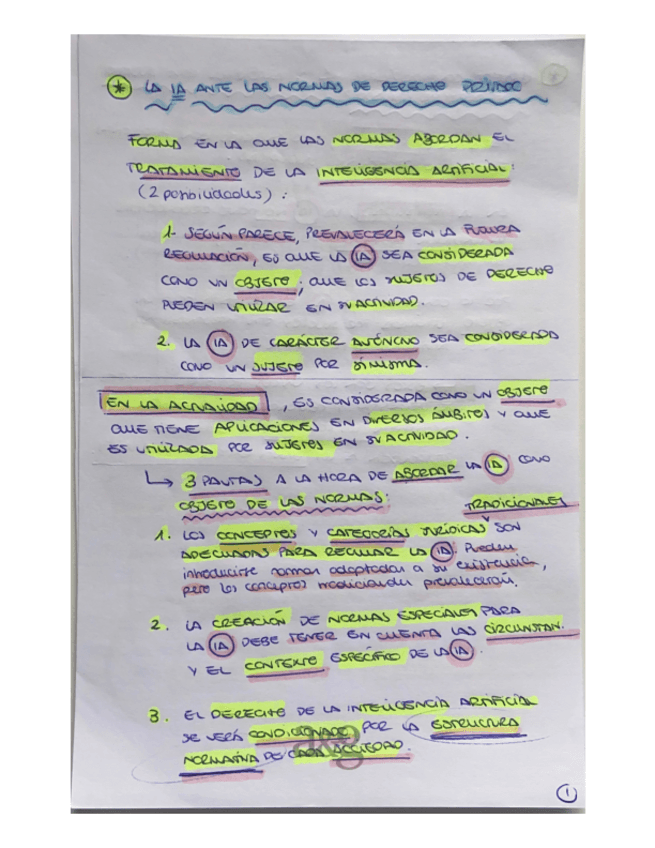 * LA IA ANTE LAS NORMAS DE DERECHO PRIVADO
FORMA EN LA QUE LAS NORMAS ABORDAN EL
TRATAMIENTO DE LA INTELIGENCIA ARTIFICIAL:
(2 posibilidades):
1- SEGÚN PARECE, PREVALECERÁ EN LA FUTURA
REGULACIÓN, ES QUE LA IA SEA CONSIDERADA
COMO UN OBJETO; QUE LOS SUJETOS DE DERECHO
PUEDEN UTILIZAR EN SU ACTIVIDAD.
2. LA IA DE CARÁCTER AUTÓNOMO SEA CONSIDERADA
COMO UN SUJETO POR SÍ MISMA.
EN LA ACTUALIDAD, ES CONSIDERADA COMO UN OBJETO
QUE TIENE APLICACIONES EN DIVERSOS ÁMBITOS Y QUE
ES UTILIZADA POR SUJETOS EN SU ACTIVIDAD.
↳ 3 PAUTAS A LA HORA DE ABORDAR LA IA COMO
OBJETO DE LAS NORMAS:
TRADICIONALES
1. LOS CONCEPTOS Y CATEGORÍAS JURÍDICAS SON
ADECUADAS PARA REGULAR LA IA. Pueden
introducirse normas adaptadas a su existencia,
pero los conceptos tradicionales prevalecerán.
2. LA CREACIÓN DE NORMAS ESPECIALES PARA
LA IA DEBE TENER EN CUENTA LAS CIRCUNSTAN.
Y EL CONTEXTO ESPECÍFICO DE LA IA.
3. EL DERECHO DE LA INTELIGENCIA ARTIFICIAL
SE VERÁ CONDICIONADO POR LA ESTRUCTURA
NORMATIVA DE CADA SOCIEDAD.
1